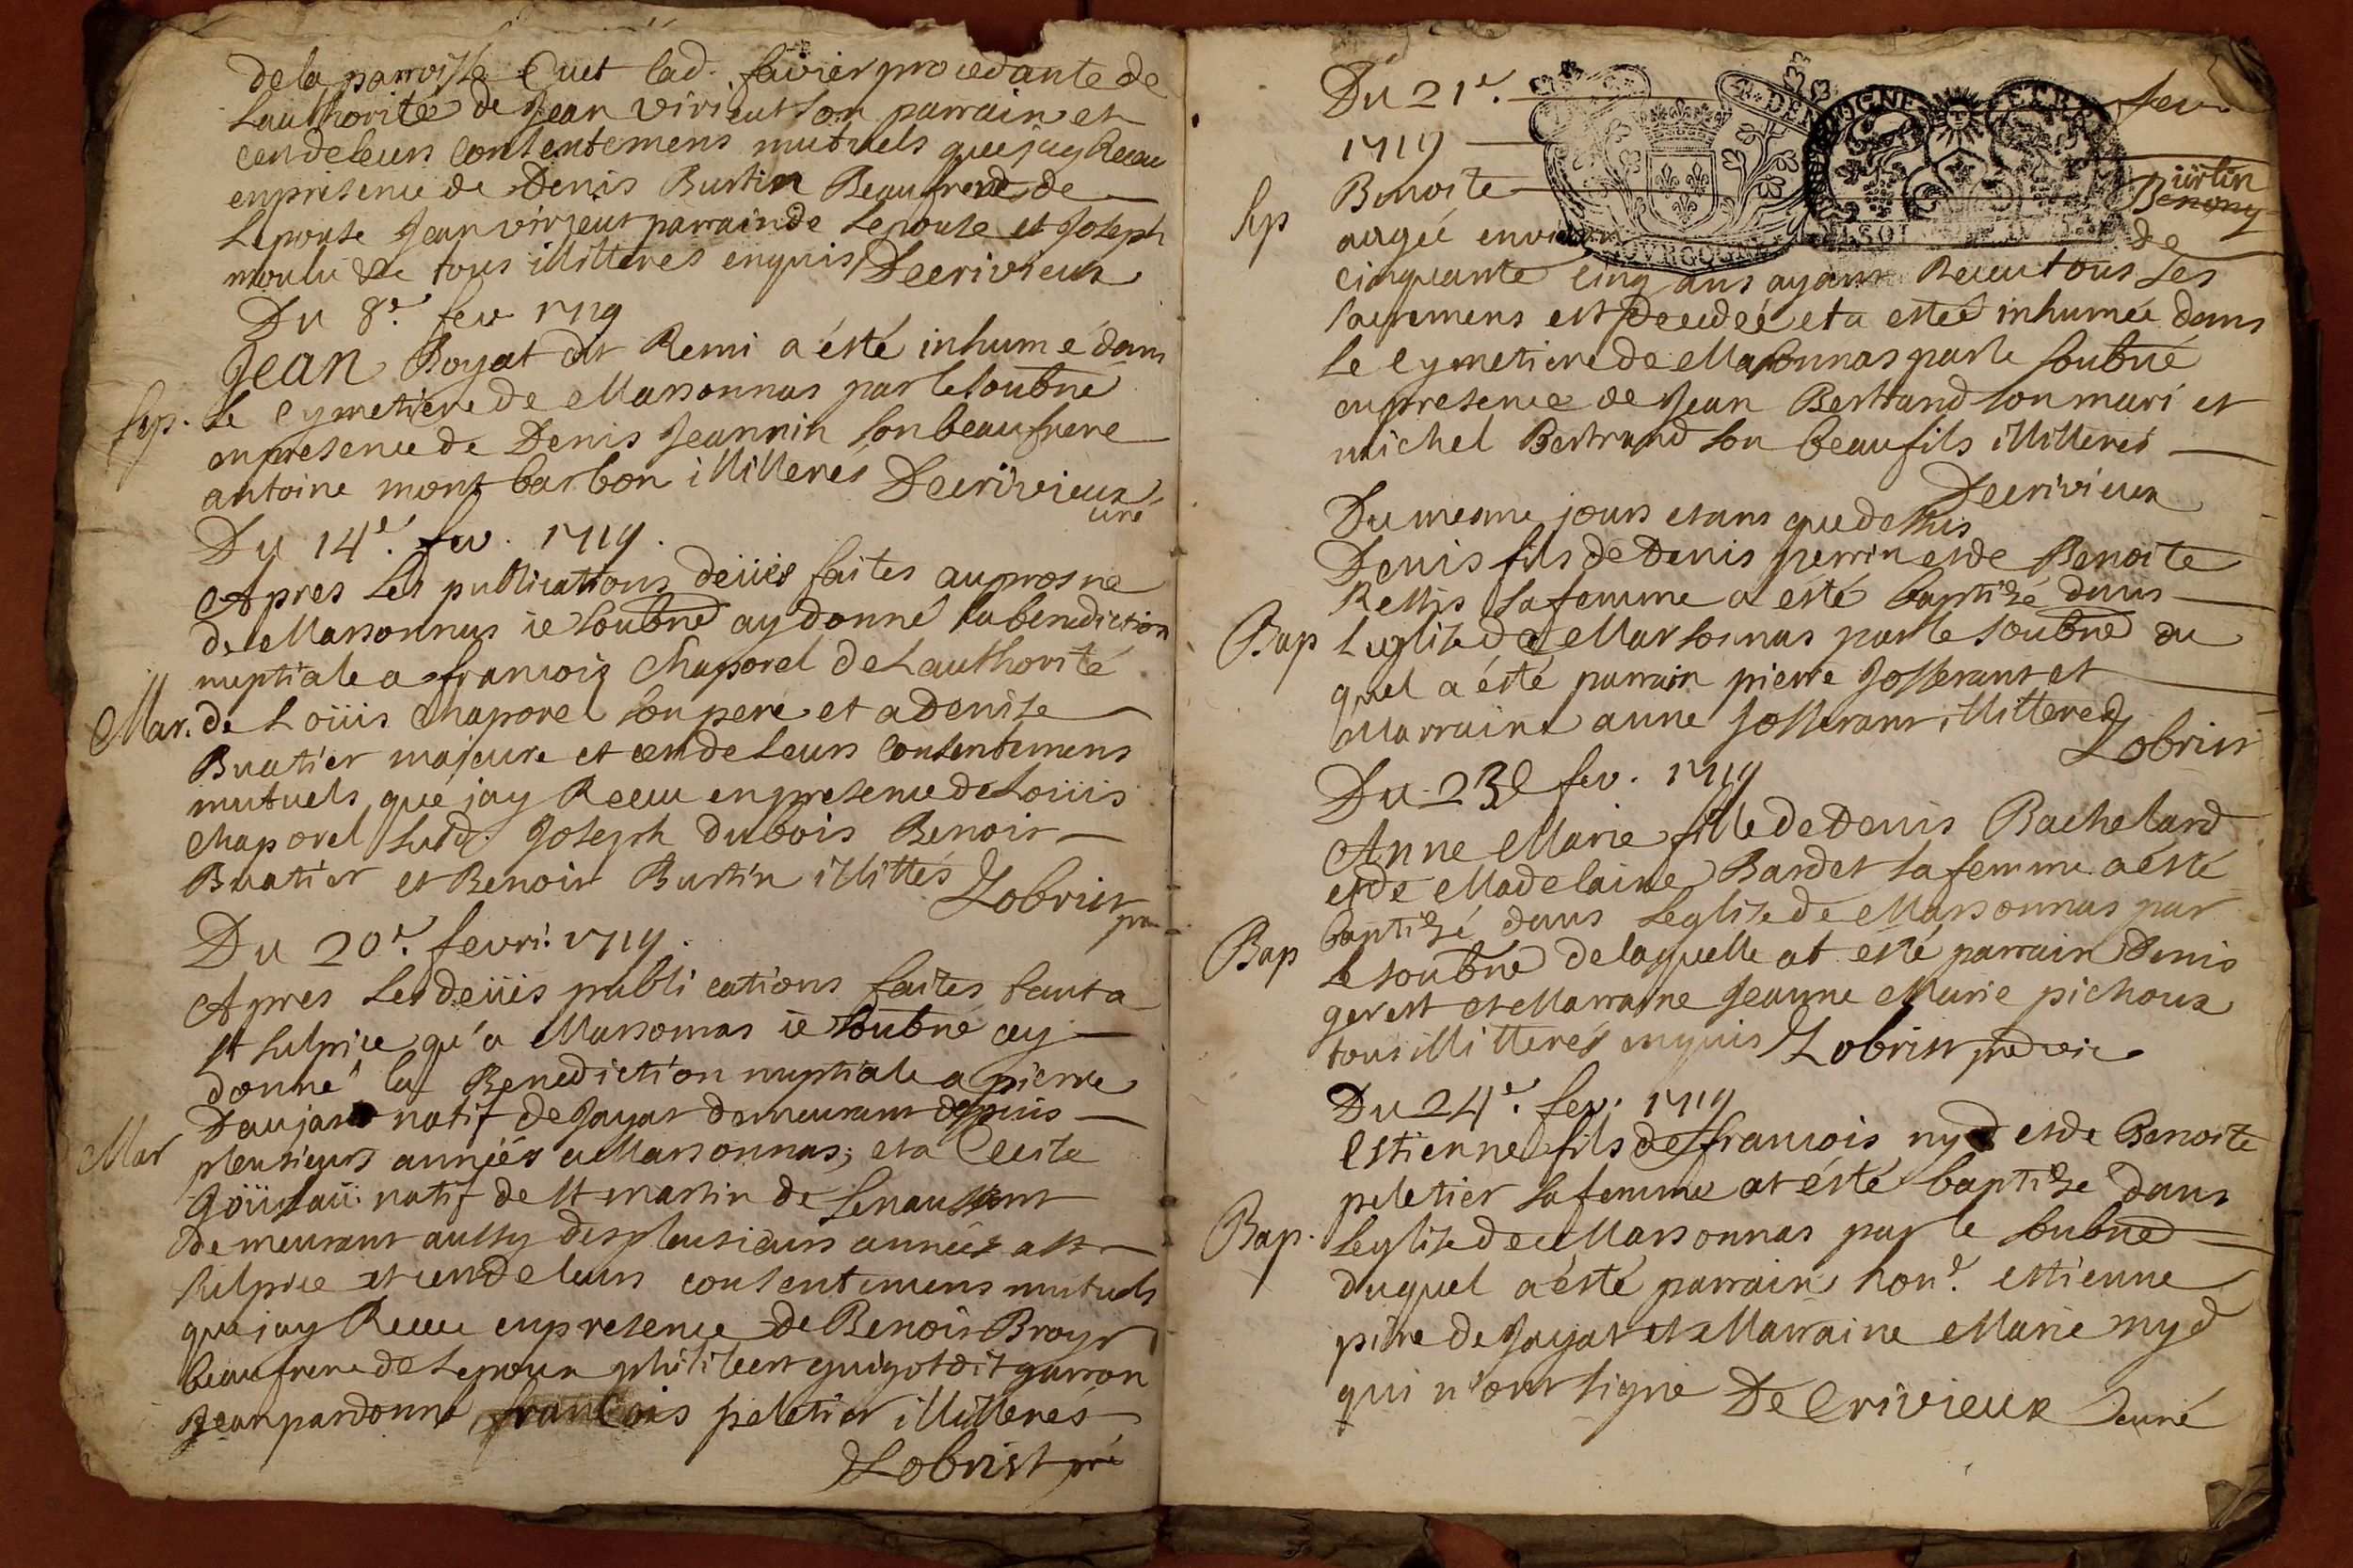 de la parroisse Cuet lad. favier procedante de
Lauthorité de Jean virieut son parrain et
ce de leurs consentemens mutuels que jay Receu
en presence de Denis Burtin Beaufrere de
Lepouse Jean virieut parrain de Lepouse et Joseph
tous illitterés enquis Decrivieux
Du 8e. fev 1719
Jean Boyat dit Remi a été inhumé dans
Sep. le Cymetiere de Marsonnas par le soubné
en presence de Denis Jeannin son beaufrere
antoine mont barbon illitterés Decrivieux
curé
Du 14e. fev. 1719.
Apres Les publications deües faites au prosne
de Marsonnas ie soubné ay donné la benediction
nuptiale a francois Chaporel de Lauthorité
Mar. de Loüis Chaporel son pere et a Denise
Buatier majeure et ce de leurs consentemens
mutuels que jay Receu en presence de Loüis
Chaporel susd. Joseph dubois Benoit
Buatier et Benoit Burtin illittés Lobrist
Du 20e. fevri. 1719.
Apres Les deües publications faites tant a
St sulpice qu'a Marsonnas ie soubné ay
donné la Benediction nuptiale a pierre
Daujat natif de Jayat demeurant depuis
Mar plusieurs années a Marsonnas; et a Cecile
natif de St martin de
demeurant aussy des plusieurs années a St
sulpice et ce de leurs consentemens mutuels
que jay Receu en presence de Benoit Broyr
beaufrere de Lepoux philibert guigot dit garron
Jean pardonne, francois peletier illitterés
Lobrist pre
Du 21e. fev
1719
Sep Benoite Burtin
aagée environ de
cinquante cinq ans ayant Receu tous Les
sacremens est decedée et a estée inhumée dans
Le Cymetiere de Marsonnas par le soubné
en presence de Jean Bertrand son mari et
michel Bertrand son beaufils illitterés
Decrivieux
Du mesme jours et ans que dessus
Denis fils de Denis perrin et de Benoite
Rettis sa femme a esté baptizé dans
Bap Leglise de Marsonnas par le soubné du
quel a été parrain pierre Josserant et
Marraine anne Josserant illitteres
Lobrist
Du 23e fev. 1719
Anne Marie fille de Denis Bachelard
et de Madelaine Bardet sa femme a esté
baptizé dans Leglise de Marsonnas par
Bap Le soubné de laquelle at esté parrain Denis
et Marraine Jeanne Marie pichoux
tous illitterés enquis Lobrist
Du 24e. fev. 1719
Estienne fils de francois nyd et de Benoite
peletier sa femme at été baptizé dans
Bap. Leglise de Marsonnas par le soubné
duquel a esté parrain hone. estienne
pire de Jayat et Marraine Marie nyd
qui n'ont signe De Crivieux curé